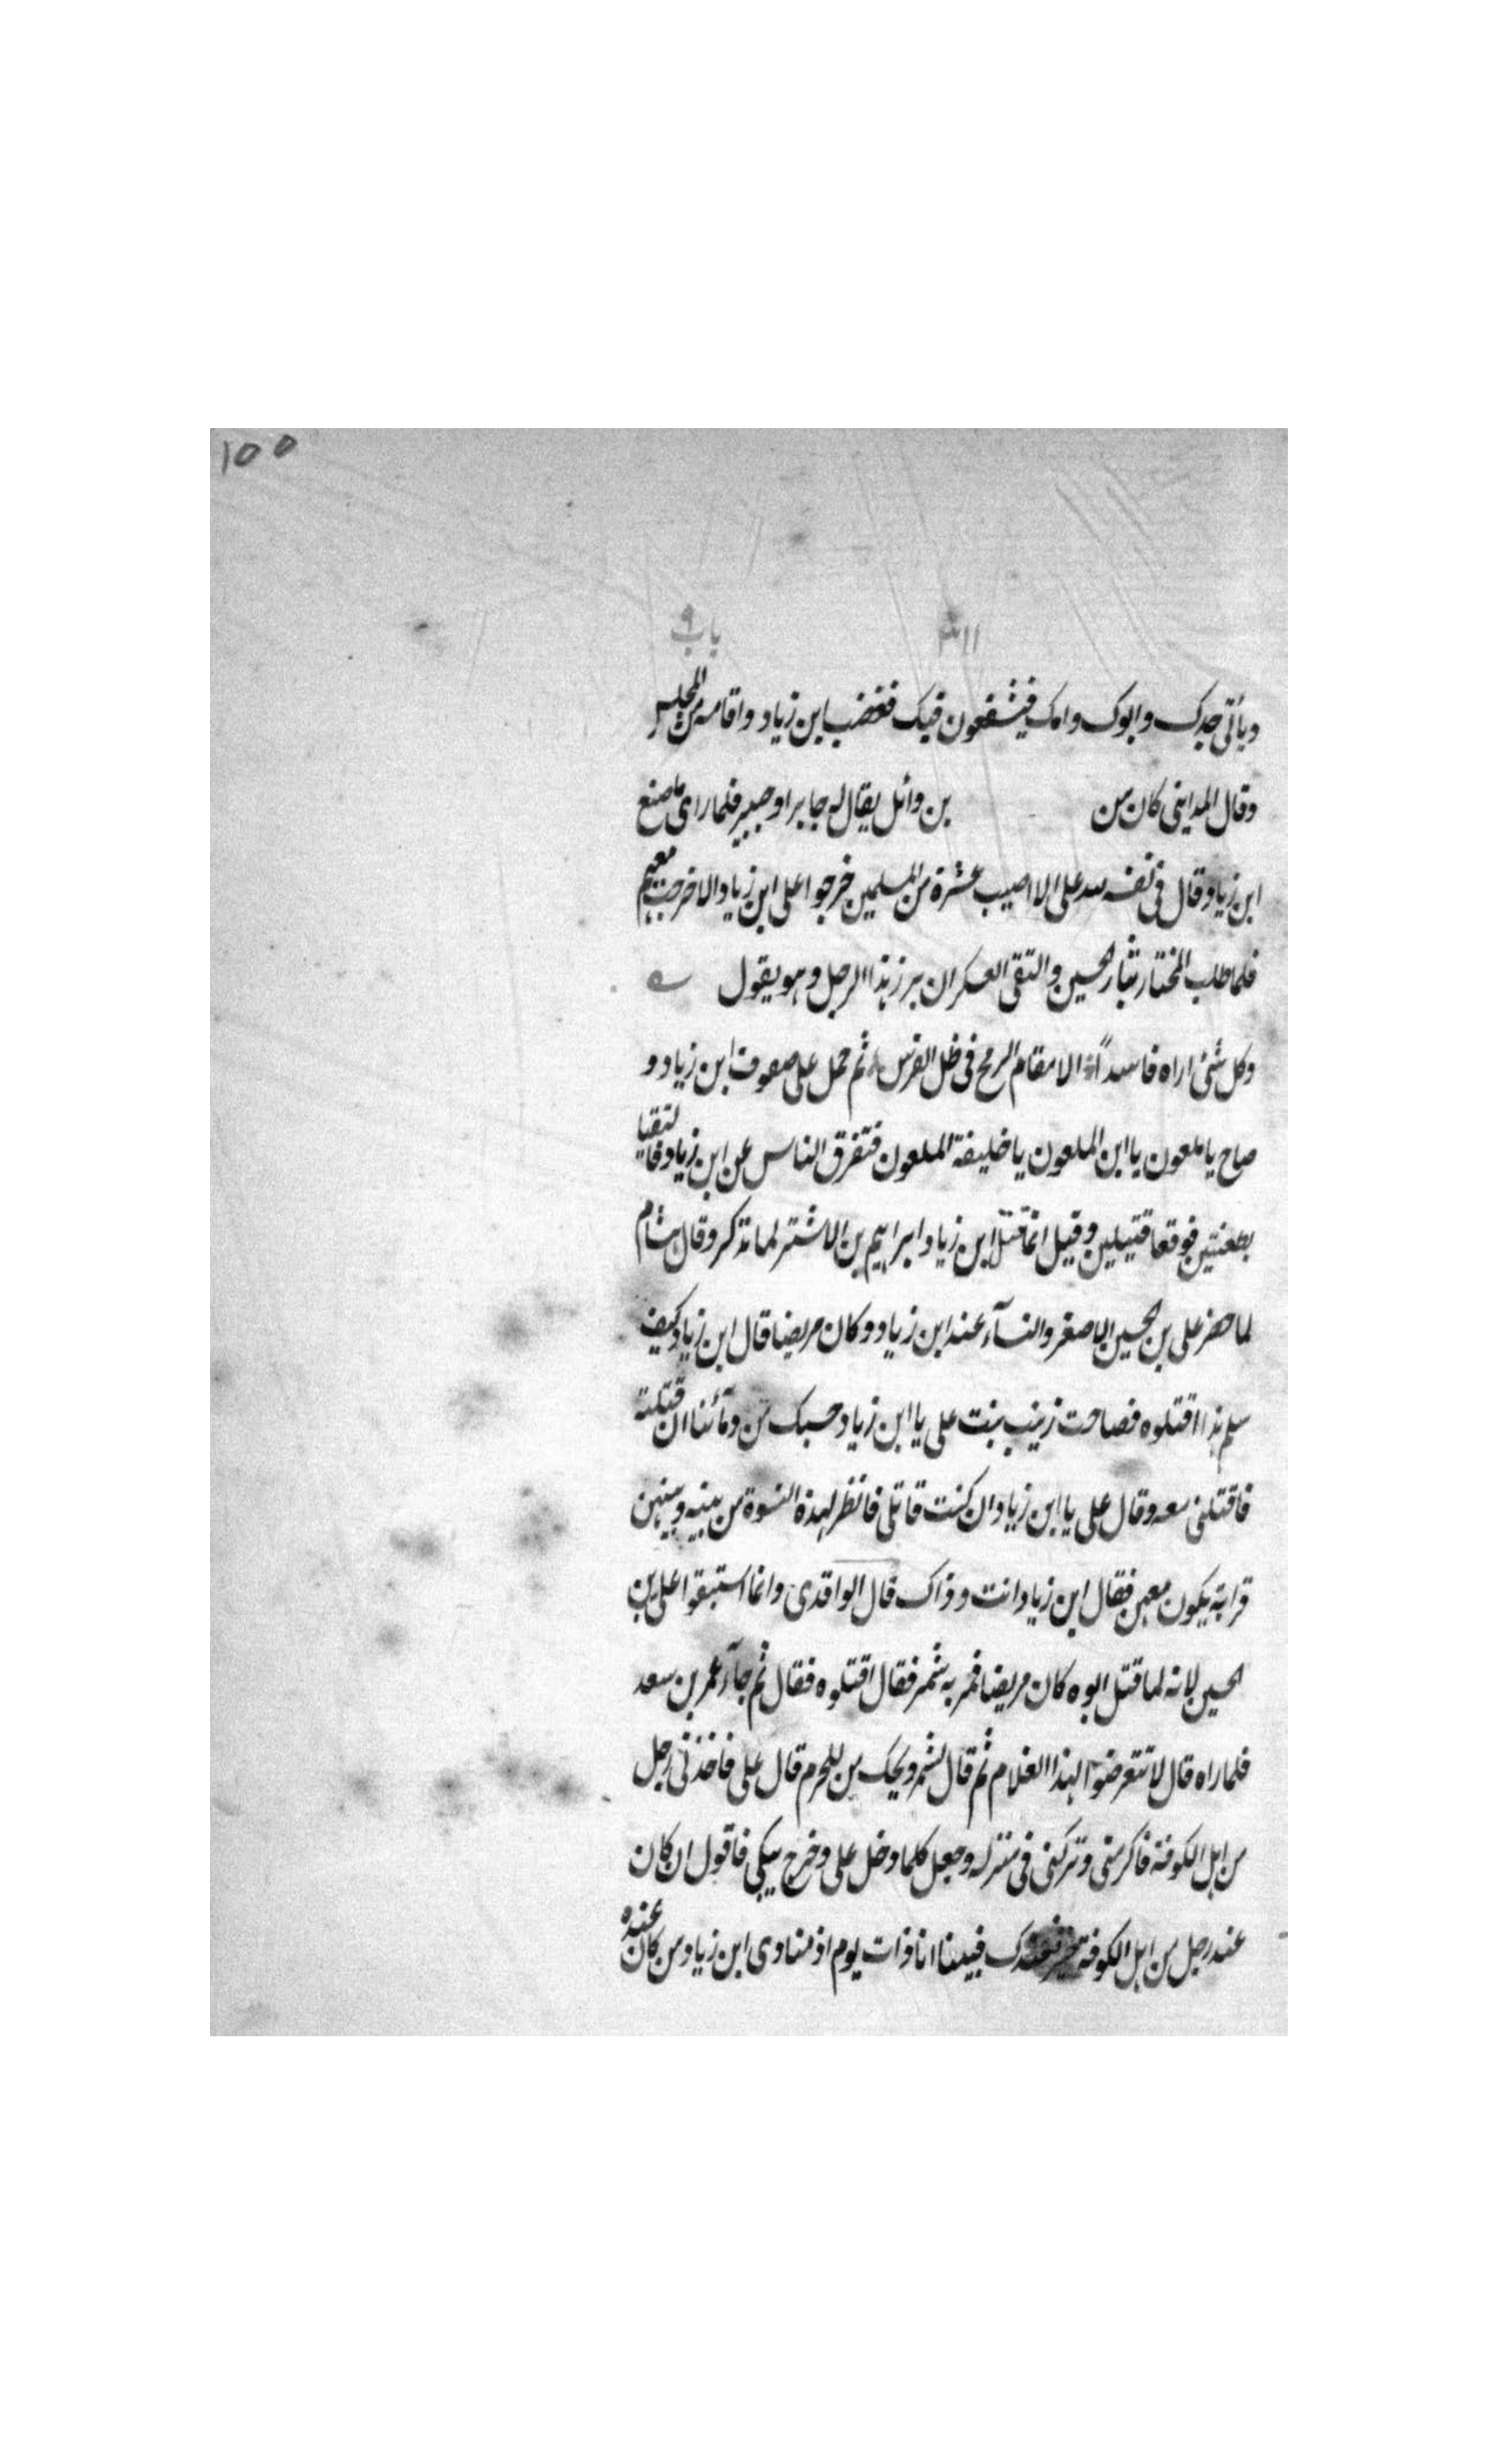 ١٥٥
١١٣ باب ٩
وياتى جدك وابوك وامك فيشفعون فيك فغضب ابن زياد واقامه من المجلس
وقال المداينى كان من بن وائل يقال له جابر او جبير فلما راى ما صنع
ابن زياد وقال فى نفسه لله على الا اصيب عشرة من المسلمين خرجوا على ابن زياد الا خرجت معهم
فلما طلب المختار بثار الحسين والتقى العسكران برز هذا الرجل وهو يقول
وكل شئ اراه فاسداً الا مقام الرمح فى ظل الفرس ثم حمل على صفوف ابن زياد و
صاح يا ملعون يا ابن الملعون يا خليفة الملعون فتفرق الناس عن ابن زياد فالتقيا
بطعنتين فوقعا قتيلين وقيل انما قتل ابن زياد ابراهيم بن الاشتر لما نذكر وقال هشام
لما حضر على بن الحسين الاصغر والنسآء عند ابن زياد وكان مريضا قال ابن زياد كيف
سلم هذا اقتلوه فصاحت زينب بنت على يا ابن زياد حسبك من دمآئنا ان قتلته
فاقتلنى معه وقال على يا ابن زياد ان كنت قاتلى فانظر لهذه النسوة من بينه وبينهن
قرابة يكون معهن فقال ابن زياد انت وذاك قال الواقدى وانما استبقوا على بن
الحسين لانه لما قتل ابوه كان مريضا فمر به شمر فقال اقتلوه فقال ثم جآء عمر بن سعد
فلما راه قال لا تتعرضوا لهذا الغلام ثم قال لشمر ويحك من للحرم قال على فاخذنى رجل
من اهل الكوفة فاكرمنى وتركنى فى منزله وجعل كلما دخل على وخرج يبكى فاقول ان كان
عند رجل من اهل الكوفة خير فعندك فبينا انا ذات يوم اذ منادى ابن زياد من كان عنده